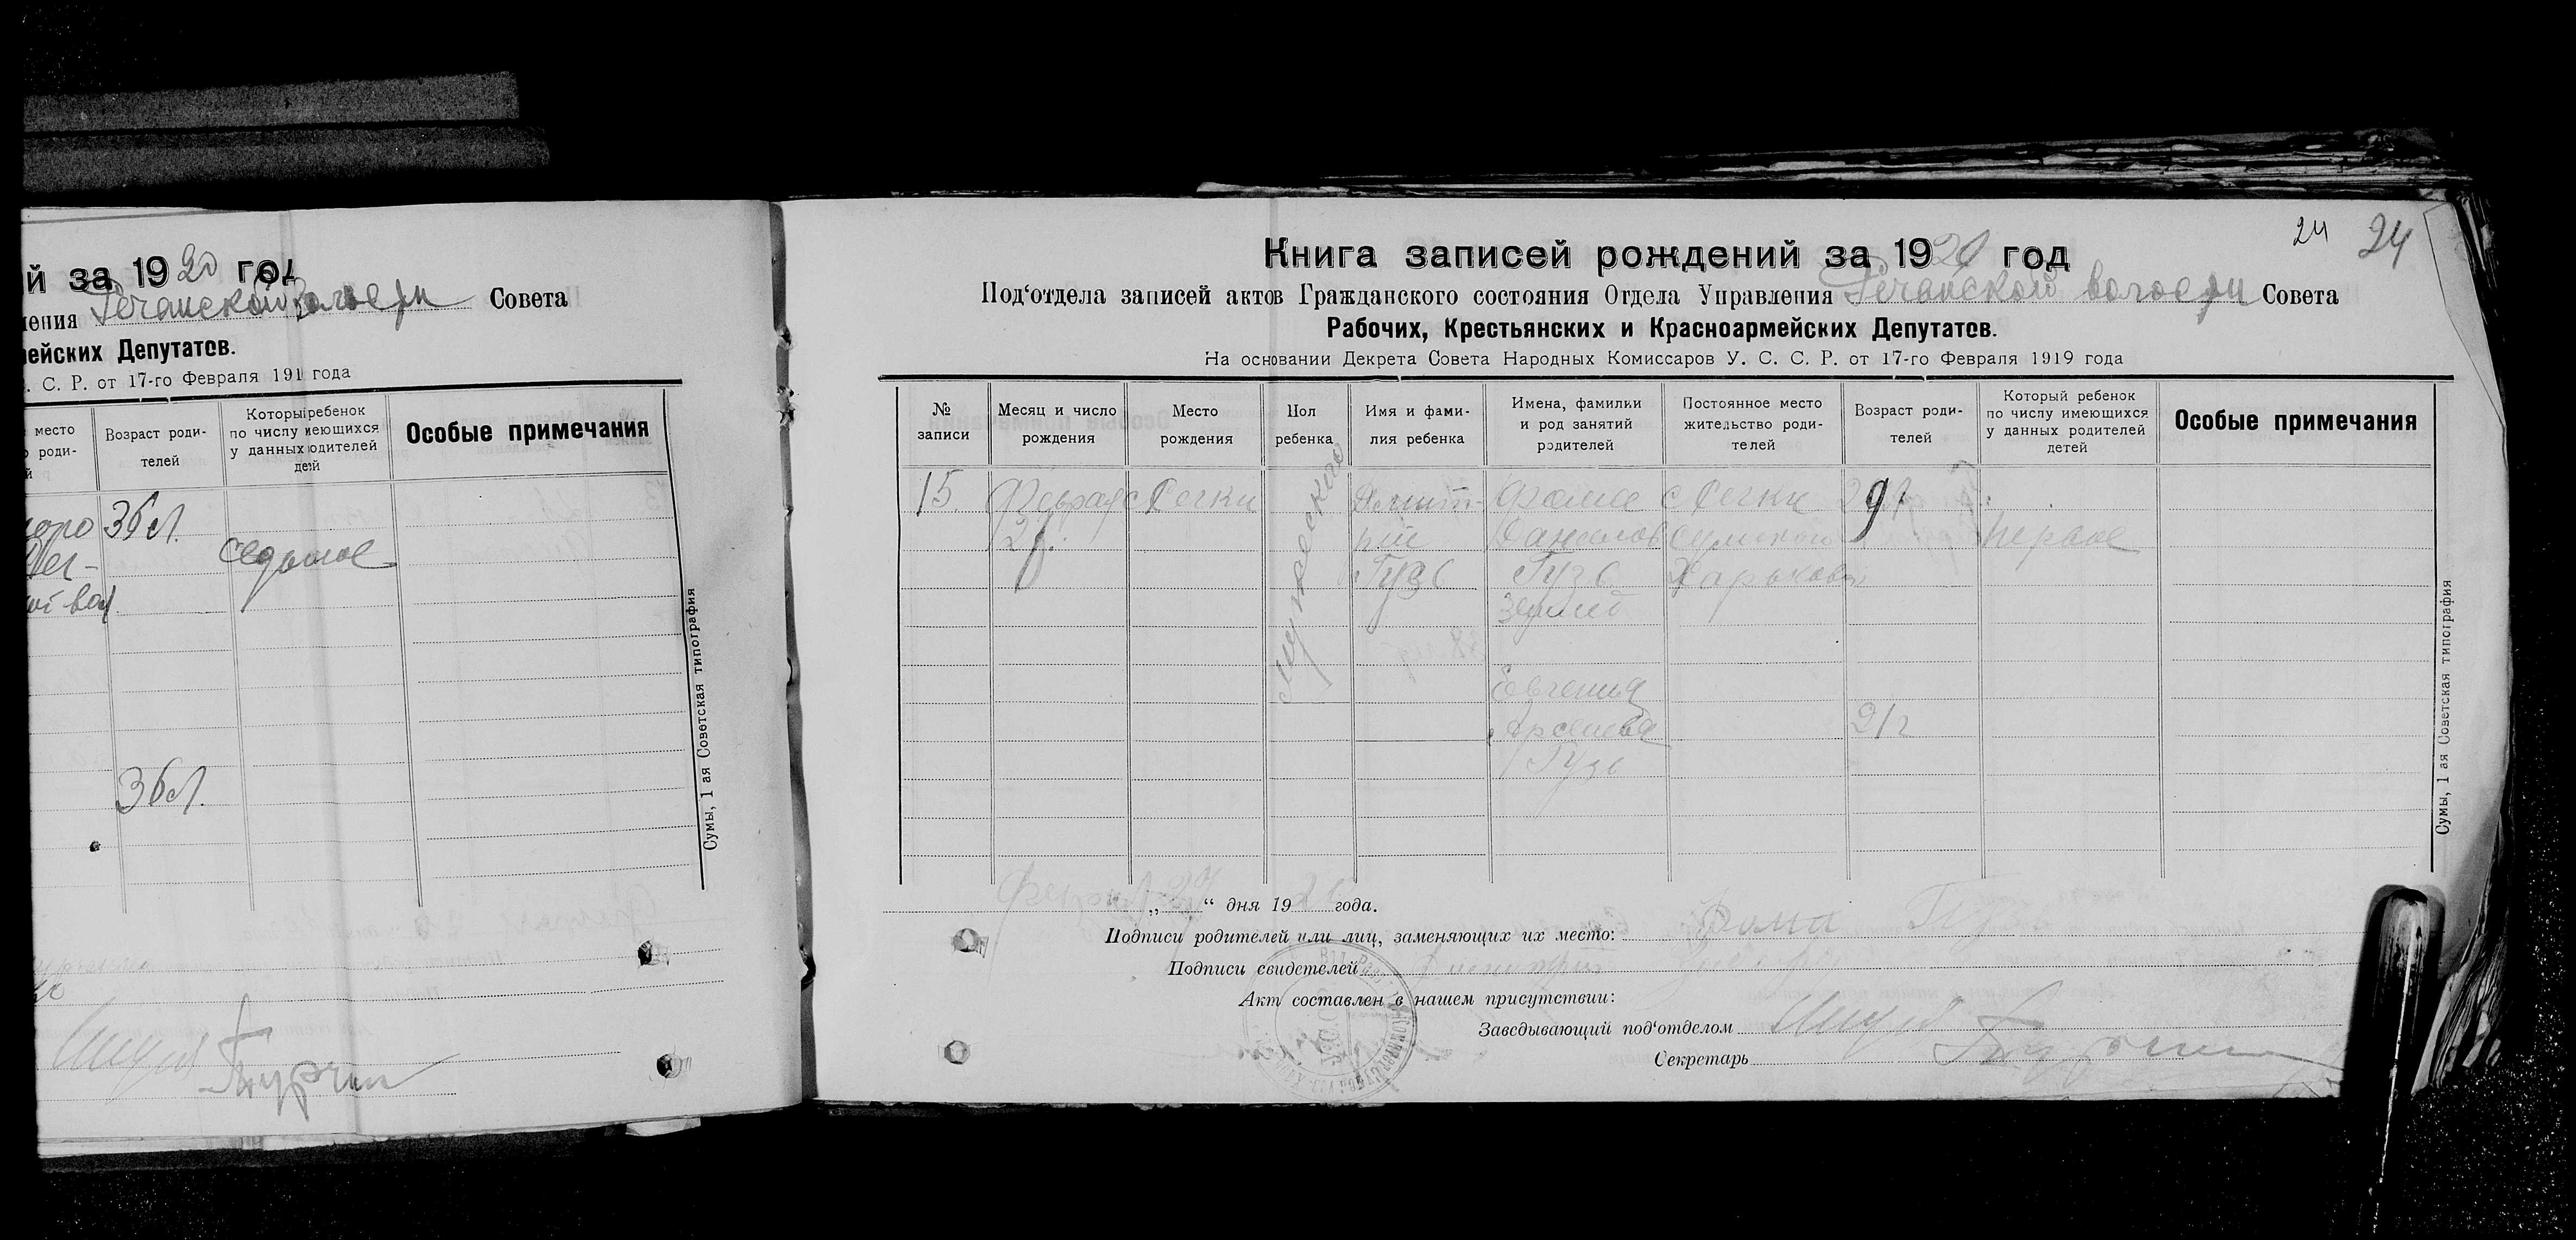 й за 1920 год
ения Речанской волости Совета
ейских Депутатов.
. С. Р. от 17-го Февраля 191 года
место
роди-
й
Возраст роди-
телей
Которы ребенок
по числу меющихся
у данных одителей
детй
Особые примечания
36 л.
седьмое
36 л.
Сумы, 1 ая Советская типография
24 24
Книга записей рождений за 1920 год
Под‘отдела записей актов Гражданского состояния Отдела Управления Речанской волости Совета
Рабочих, Крестьянских и Красноармейских Депутатов.
На основании Декрета Совета Народных Комиссаров У. С. С. Р. от 17-го Февраля 1919 года
№
записи
Месяц и число
рождения
Место
рождения
Пол
ребенка
Имя и фами-
лия ребенка
Имена, фамилии
и род занятий
родителей
Постоянное место
жительство роди-
телей
Возраст роди-
телей
Который ребенок
по числу имеющихся
у данных родителей
детей
Особые примечания
15.
с Речки
мужеского
Дмит-
рий
Гузь
Фома
Данилов
Гузь
с Речки
Сумского
Харьков
первое
Евгения
Арсеньева
Гузь
21 г
Сумы, 1 ая Советская типография
„ “ дня 19 года.
Подписи родителей или лиц, заменяющих их место: Фома Гузь
Подписи свидетелей
Акт составлен в нашем присутствии:
Заведывающий под‘отделом
Секретарь